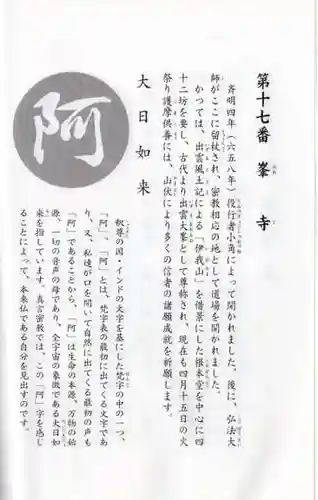 第十七番 峯寺
みね じ
斉明四年(六五八年)役行者小角によって開かれました。後に、弘法大
師がここに留杖され、密教相応の地として道場を開かれました。
かつては、出雲風土記による「伊我山」を借景にした根本堂を中心に四
十二坊を要し、古代より出雲大峯として尊称され、現在も四月十五日の火
祭り護摩供養には、山伏により多くの信者の諸願成就を祈願します。
大日如来
阿
釈尊の国・インドの文字を基にした梵字の中の一つ、
「阿」。「阿」とは、梵字表の最初に出てくる文字であ
り、又、私達が口を開いて自然に出てくる最初の声も
「阿」であることから、「阿」は生命の本源、万物の始
源、一切の音声の母であり、全宇宙の象徴である大日如
来を指しています。真言密教では、この「阿」字を感じ
ることによって、本来仏である自分を見出すのです。